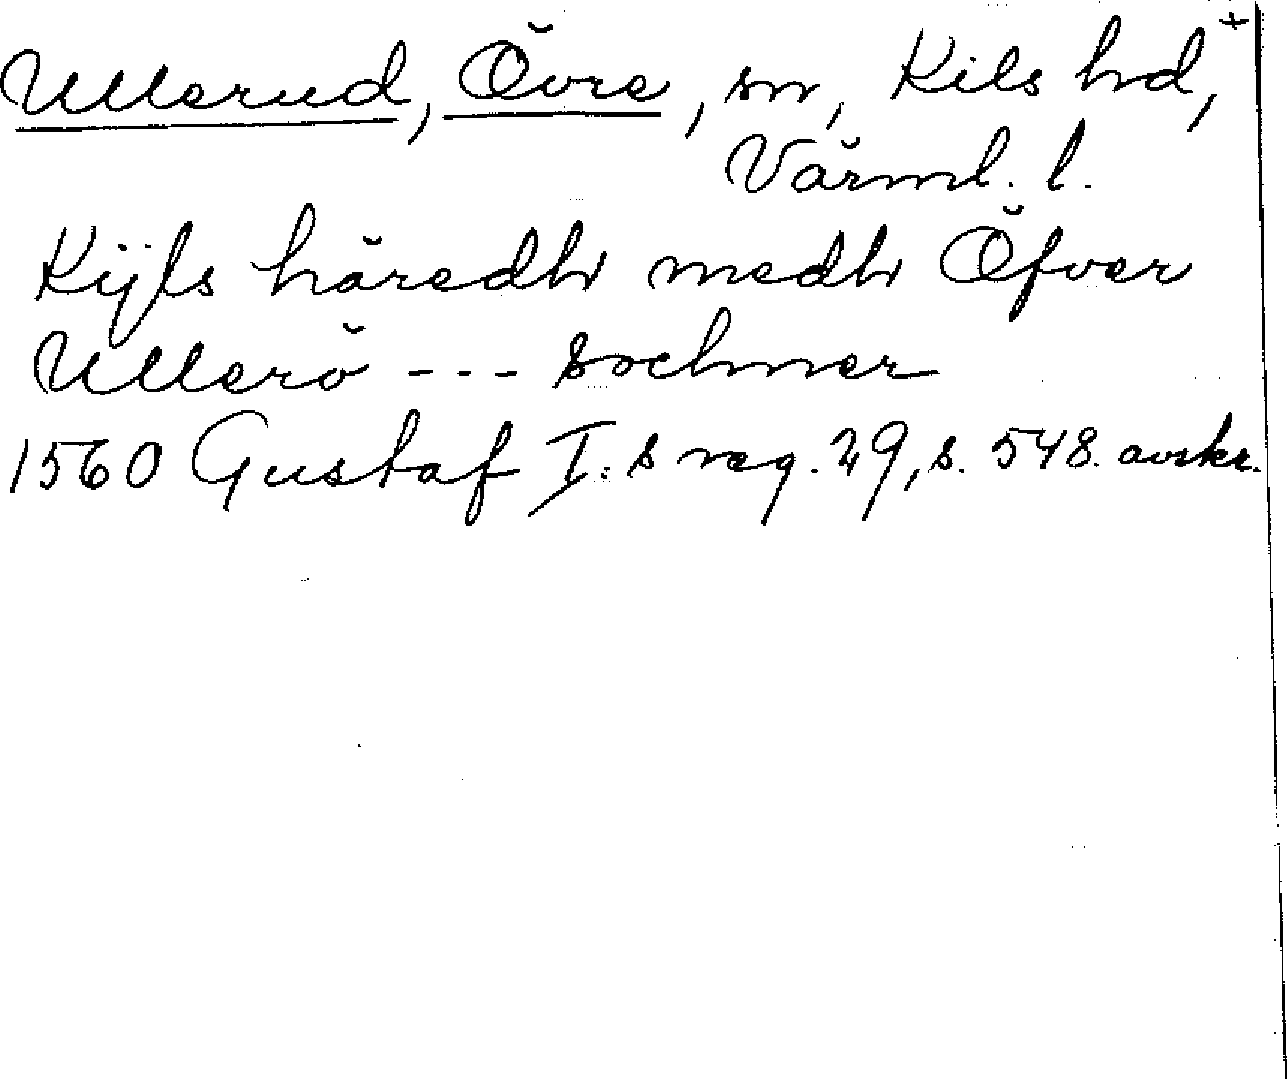 Ullerud, Övre, sn, Kils hd,+
Värml. l.
Kijls häredh medh Öfver
Ullerö --- sochner
1560 Gustaf I:s reg. 29, s. 548. avskr.